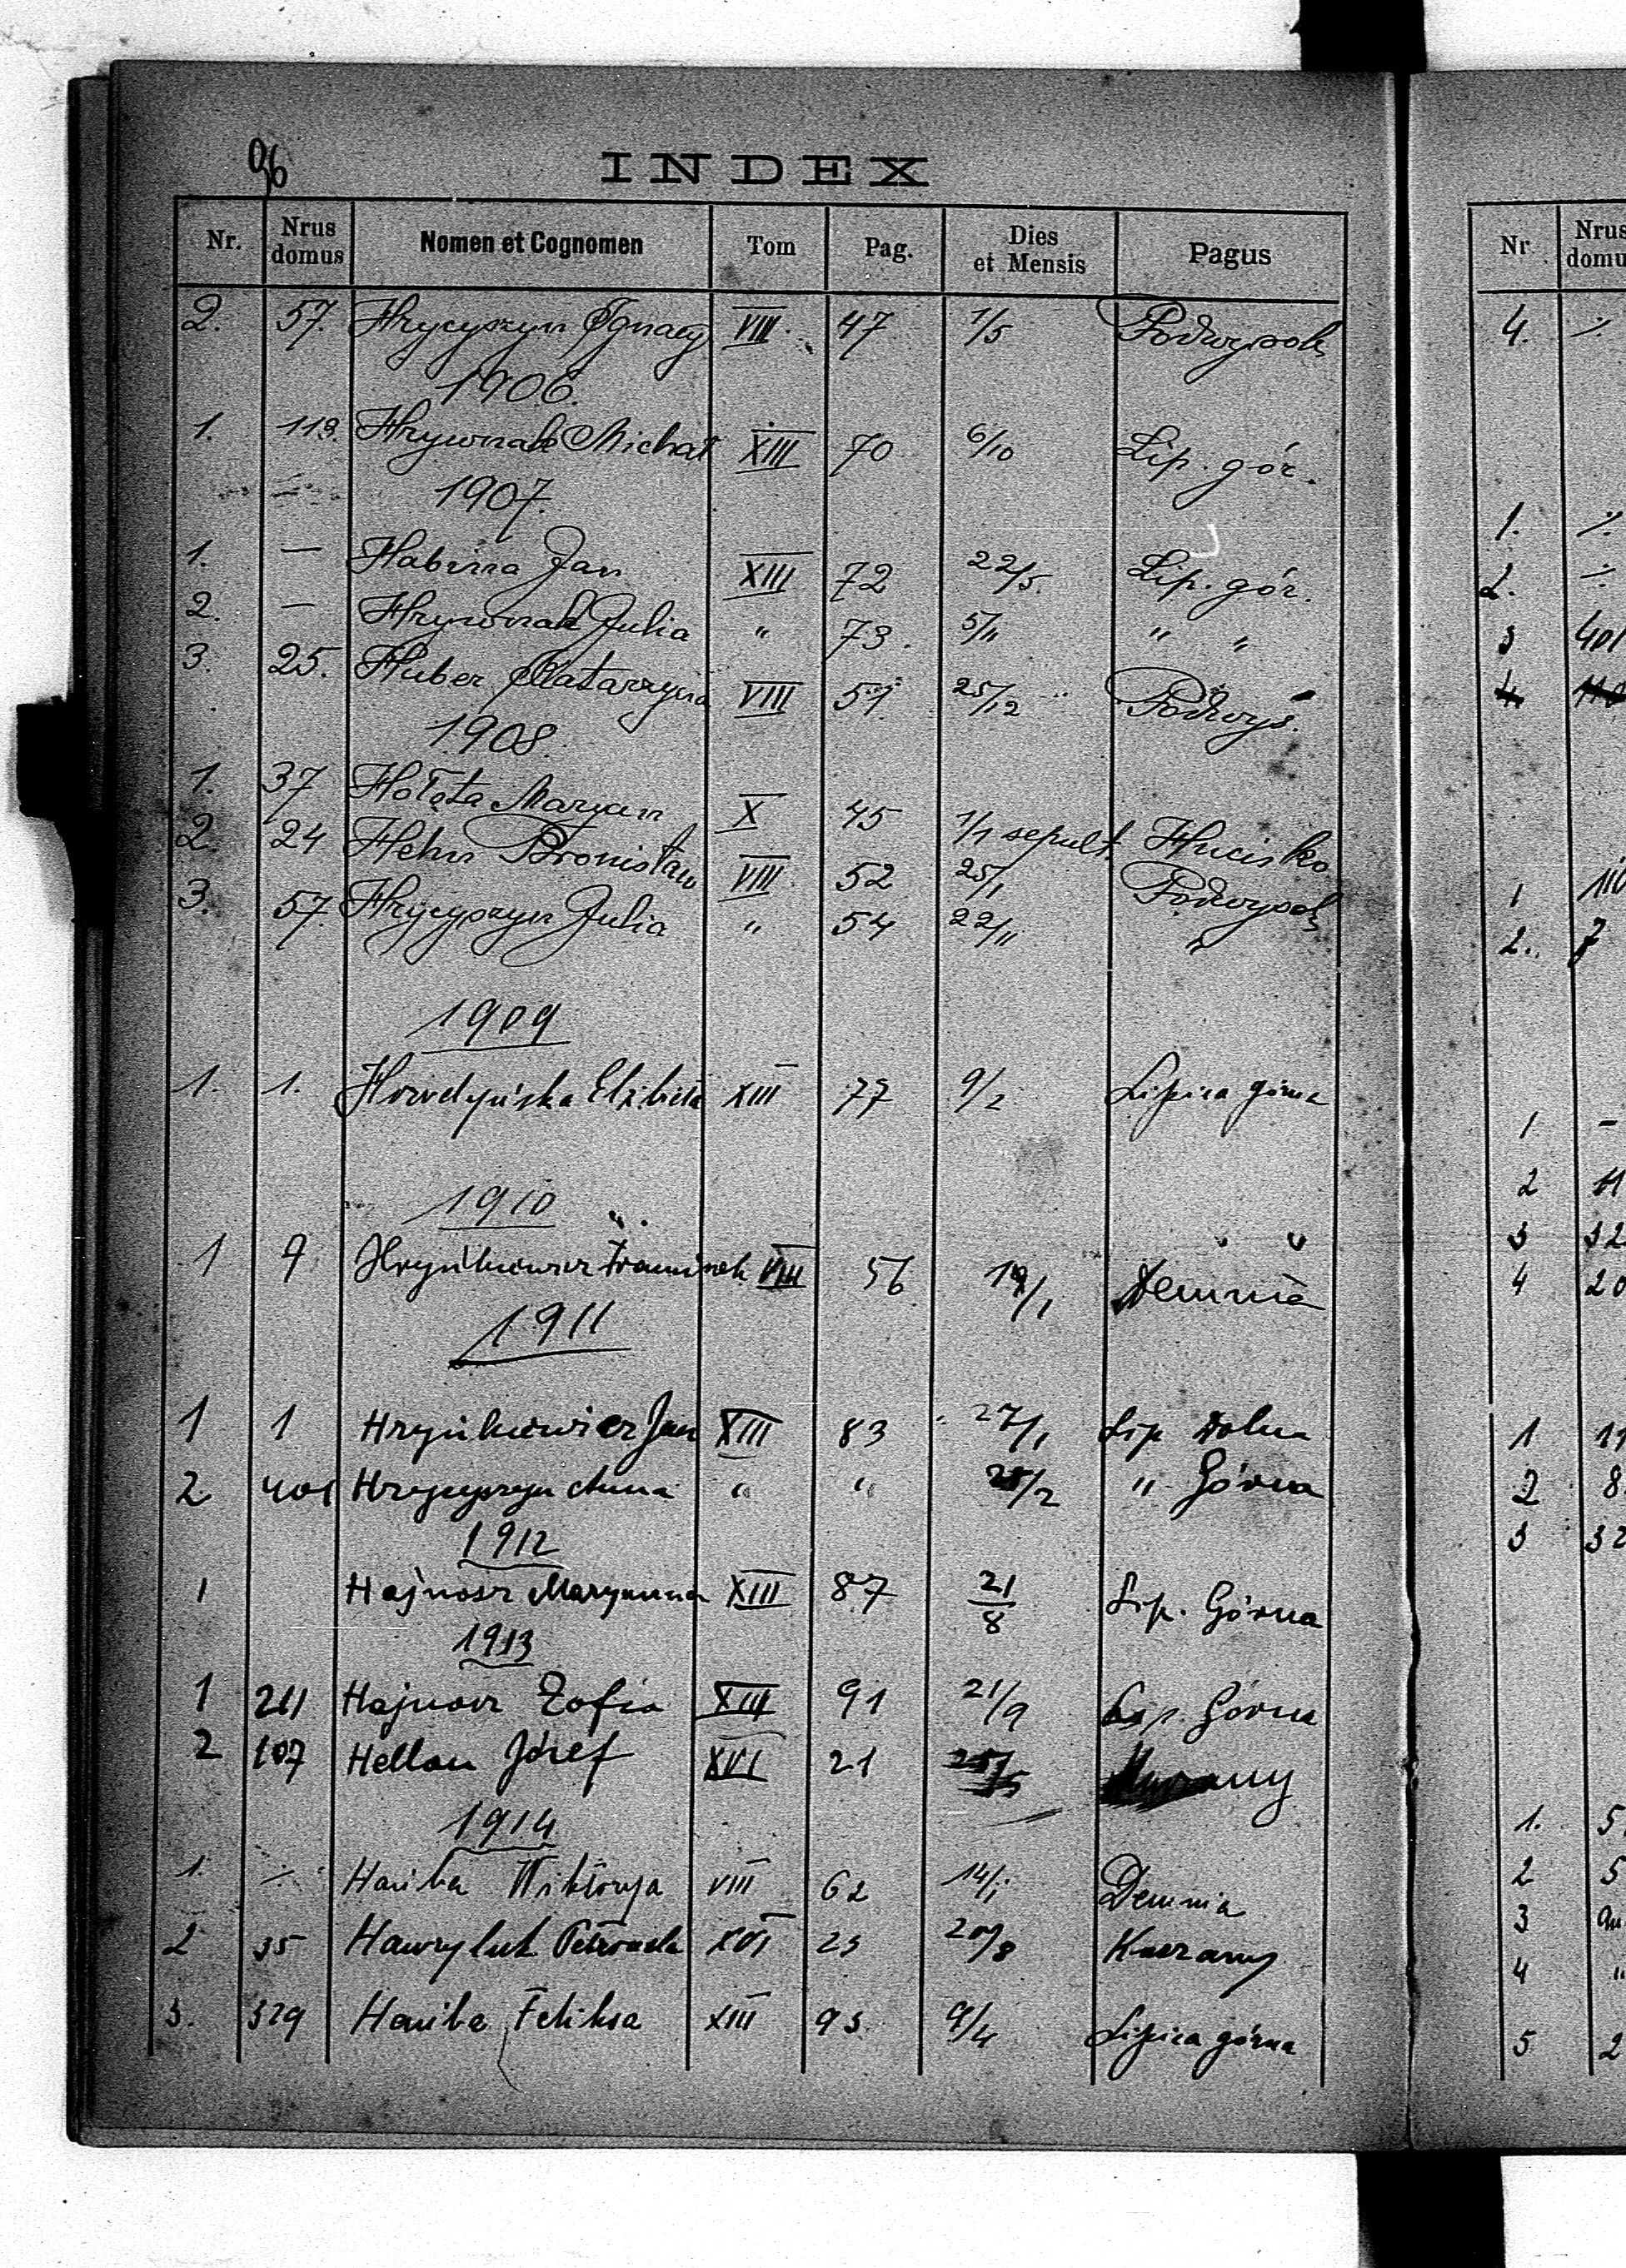 96
INDEX
Nr. Nrus domus Nomen et Cognomen Tom Pag. Dies et Mensis Pagus
2. 57. Hrycyszyn Ignacy VIII. 47 1/5 Podwysok
1906.
1. 113. Hrywnak Michał XIII 70 6/10 Lip. gór.
1907.
1. — Habina Jan XIII 72 22/5. Lip. gór.
2. — Hrywnak Julia " 73. 5/11 " "
3. 25. Huber Katarzyna VIII 51 25/12 Podwys.
1908.
1. 37 Hołąta Maryan X 45 1/1 sepult. Hucisko
2. 24 Hehn Bronisław VIII 52 25/1 Podwysok
3. 57. Hrycyszyn Julia " 54 22/11 "
1909
1. 1. Horodyńska Elżbieta XIII 77 9/2 Lipica górna
1910
1 9 Hryńkiewicz Franciszek VIII 56 /1 Demnia
1911
1 1 Hryńkiewicz Jan XIII 83 27/1 Lip Dolna
2 401 Hrycyszyn Anna " " /2 " Górna
1912
1 Hajnosz Maryanna XIII 87 21/8 Lip. Górna
1913
1 211 Hajnosz Zofia XIII 91 21/9 Lip. Górna
2 107 Hellan Józef XVI 21 25/5
1914
1. Hańba Wiktorya VIII 62 14/1 Demnia
2 35 Hawryluk Petronela XVI 23 20/8 Kunzany
3. 329 Hańba Feliksa XIII 93 9/4 Lipica górna
Nr Nrus domu
4. ·/·
1. ·/·
2. ·/·
3 401
4
1 110
2. 7
1 -
2 11
3 32
4 20
1 11
2 8
3 32
1. 5
2 5
3
4 "
5 2